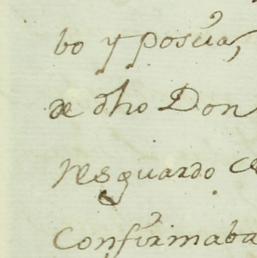 bo y posẽia,
de dho Don
resguardo ce
Confirmaba